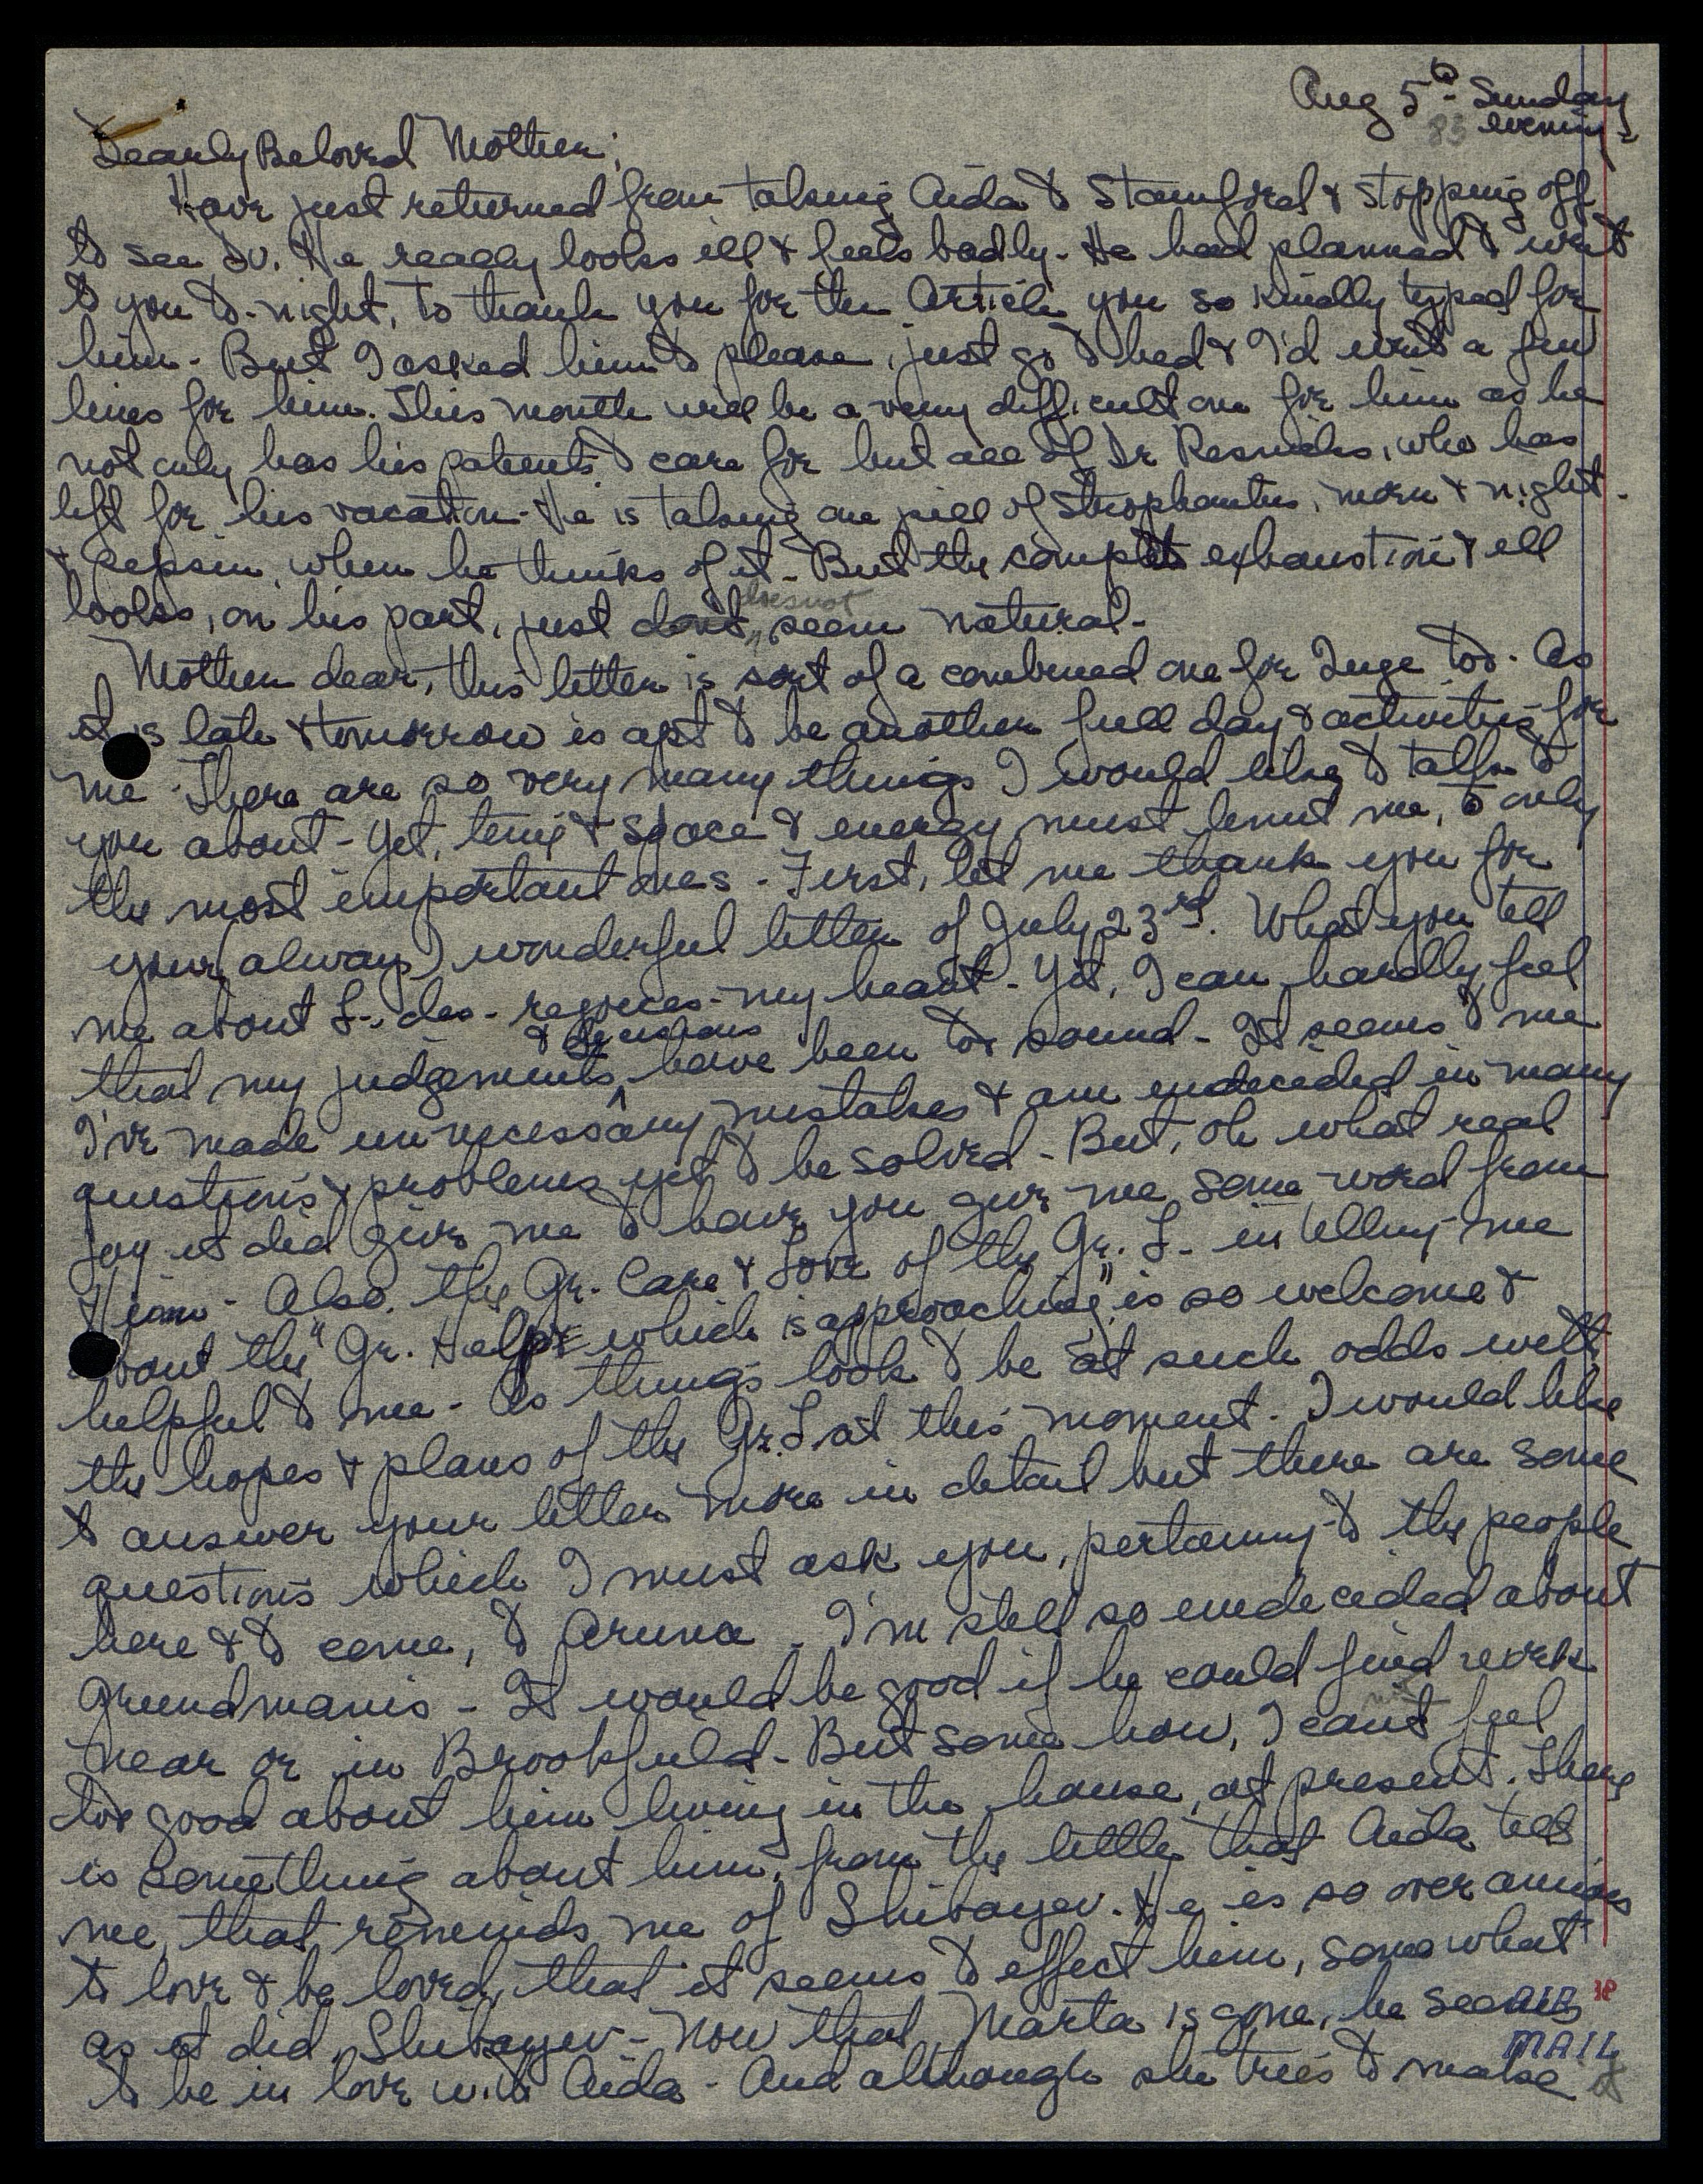 Aug 5th Sunday
83 evening -
Dearly Beloved Mother;
Have just returned from taking Aida to Stamford & stopping off
to see Dv. He really looks ill & feels badly - He had planned to write
to you to-night, to thank you for the Article you so kindly typed for
him - But I asked him to please, just go to bed & I'd write a few
lines for him. This month will be a very difficult one for him as he
not only has his patients to care for but all of Dr Resnicks, who has
left for his vacation - He is taking one pill of Strophantus, morn & night -
& Pepsin, when he thinks of it - But the complete exhaustion & ill
looks, on his part, just dont does not seem natural -
Mother dear, this letter is sort of a combined one for Inge too. As
it is late & tomorrow is apt to be another full day & activities for
me. There are so very many things I would like to talk to
you about - Yet, time & space & energy must limit me, to only
the most important ones - First, let me thank you for
your (always) wonderful letter of July 23rd. What you tell
me about F-. des - rejoices - my heart - Yet, I can hardly feel
that my judgements & decisions have been too sound - It seems to me
I've made unnecessary mistakes & am undecided in many
questions & problems yet to be solved - But, oh what real
joy it did give me to have you give me some word from
Him - Also, the Gr. Care & Love of the Gr. L- in telling me
about the "Gr. Help which is approaching" is so welcome &
helpful to me - As things look to be at such odds with
the hopes & plans of the Gr. L. at this moment. I would like
to answer your letter more in detail but there are some
questions which I must ask you, pertaining to the people
here & to come, to Aruna - I'm still so undecided about
Grundmanis - It would be good if he could find work
near or in Brookfield - But some how, I cant feel
too good about him living in the house, at present. There
is something about him, from the little that Aida tells
me, that reminds me of Shibayev. He is so over anxious
to love & be loved, that it seems to effect him, somewhat
as it did, Shibayev - Now that Marta is gone, he seems
AIR
MAIL
to be in love with Aida - And although she tries to make it